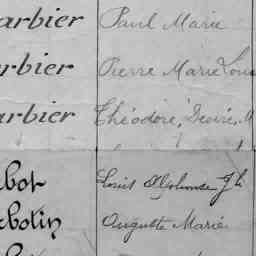 arbier Paul Marie
rbier Pierre Marie Loui
arbier Théodore, Désiré, M
bot Louis Alphonse Jh
botin Auguste Marie